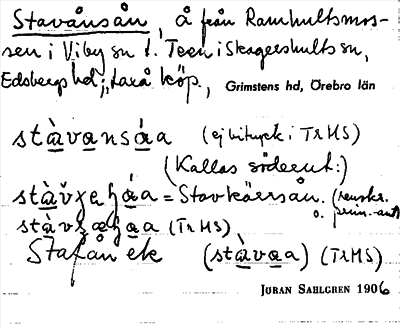 Stavånsån, å från Ramhultsmos-
sen i Viby sn t. Teen i Skagershults sn,
Edsbergs hd; Laxå köp., Grimstens hd, Örebro län
stàvansáa (ej bituyck i TrHS)
(Kallas söderut:)
= Stavkärrsån. (renskr.
o. penn.-ant)
(TrHS)
Stafån ek (stàvaa) (TrHS)
JÖRAN SAHLGREN 1906